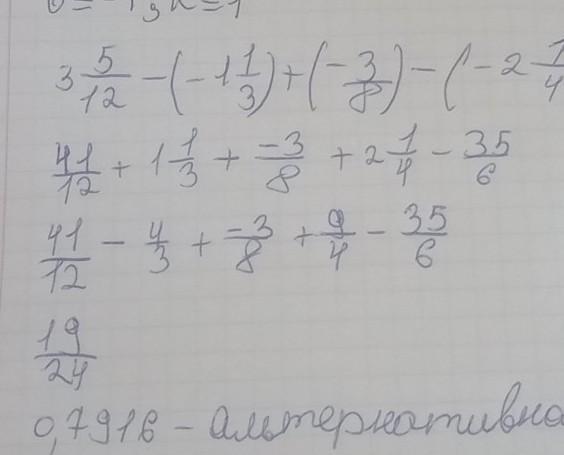 3 5/12 - (-1 1/3) + (-3/8) - (-2 1/4
41/12 + 1 1/3 + -3/8 + 2 1/4 - 35/6
41/12 - 4/3 + -3/8 + 9/4 - 35/6
19/24
0,7916 - альтернативно